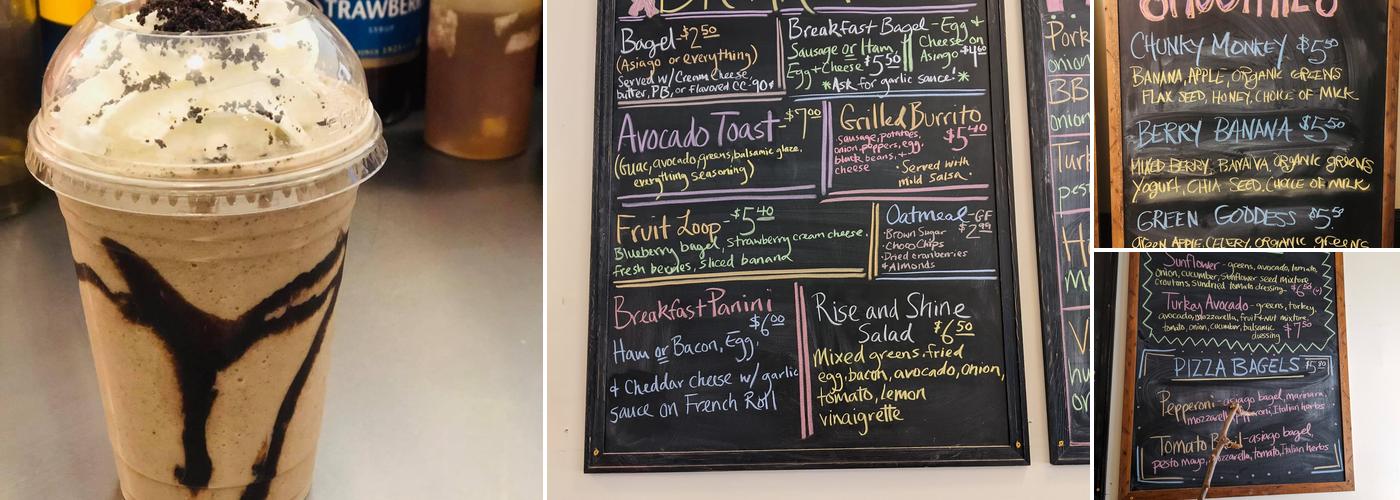 TRAWBERR
SYRUP
SINCE 1925
Bagel-$2.50
(Asiago or everything)
Served w/ Cream cheese,
butter, PB, or Flavored CC-90¢
Breakfast Bagel-Egg &
Cheese on
Asiago $4.60
Sausage or Ham,
Egg + Cheese $5.50
*Ask for garlic sauce!*
Avocado Toast-$7.00
(Guac, avocado, greens, balsamic glaze,
everything seasoning)
Grilled Burrito
$5.40
sausage, potatoes,
onion, peppers, egg,
black beans, +
cheese
• Served with
mild salsa.
Fruit Loop-$5.40
Blueberry bagel, strawberry cream cheese,
fresh berries, sliced banana
Oatmeal-GF
$2.99
• Brown Sugar
• Choco Chips
• Dried cranberries
& Almonds
Breakfast Panini
$6.00
Ham or Bacon, Egg,
& Cheddar cheese w/ garlic
sauce on French Roll
Rise and Shine
Salad $6.50
Mixed greens, fried
egg, bacon, avocado, onion,
tomato, lemon
vinaigrette
Pork
onion
BB
onion
Turk
pest
SMOOTHIES
CHUNKY MONKEY $5.50
BANANA, APPLE, ORGANIC GREENS
FLAX SEED, HONEY, CHOICE OF MILK
BERRY BANANA $5.50
MIXED BERRY, BANANA, ORGANIC greens
Yogurt, CHIA SEED, CHOICE OF MILK
GREEN GODDESS $5.50
GREEN APPLE, CELERY, ORGANIC greens
Sunflower - greens, avocado, tomato,
onion, cucumber, sunflower seed mixture
croutons, sundried tomato dressing
Turkey Avocado - greens, turkey,
avocado, mozzarella, fruit+nut mixture,
tomato, onion, cucumber, balsamic
dressing $7.50
PIZZA BAGELS $5.80
Pepperoni - asiago bagel, marinara,
mozzarella, Italian herbs
Tomato Basil - asiago bagel
pesto mayo, mozzarella, tomato, Italian herbs